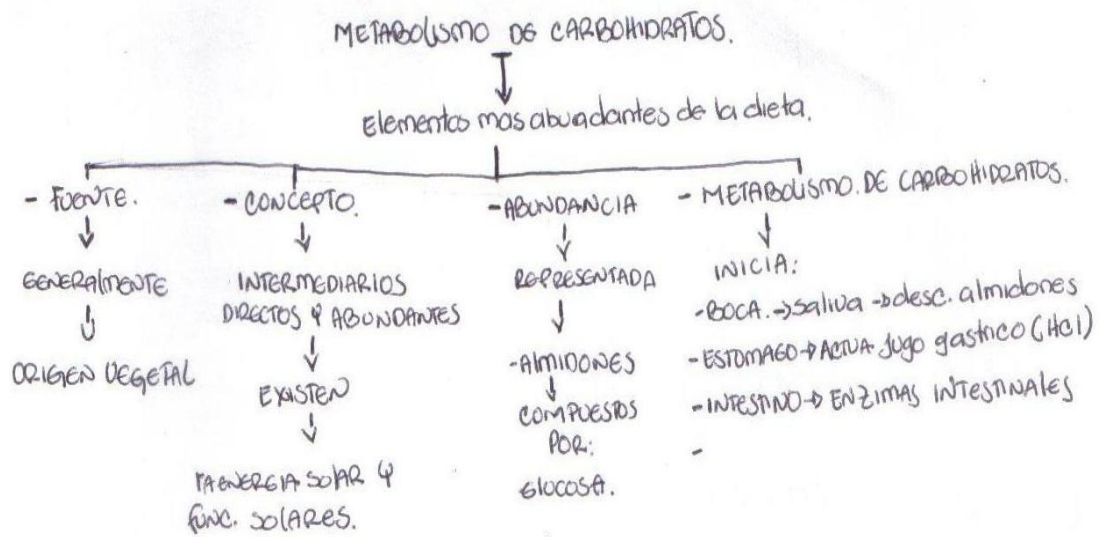 METABOLISMO DE CARBOHIDRATOS.
Elementos mas abundantes de la dieta.
- FUENTE.
GENERALMENTE
ORIGEN VEGETAL
- CONCEPTO.
INTERMEDIARIOS
DIRECTOS Y ABUNDANTES
EXISTEN
ENERGIA SOLAR Y
FUNC. SOLARES.
- ABUNDANCIA
REPRESENTADA
- ALMIDONES
COMPUESTOS
POR:
GLUCOSA.
- METABOLISMO. DE CARBOHIDRATOS.
INICIA:
- BOCA. → saliva → desc. almidones
- ESTOMAGO → ACTUA Jugo gastrico (HCl)
- INTESTINO → ENZIMAS INTESTINALES
-